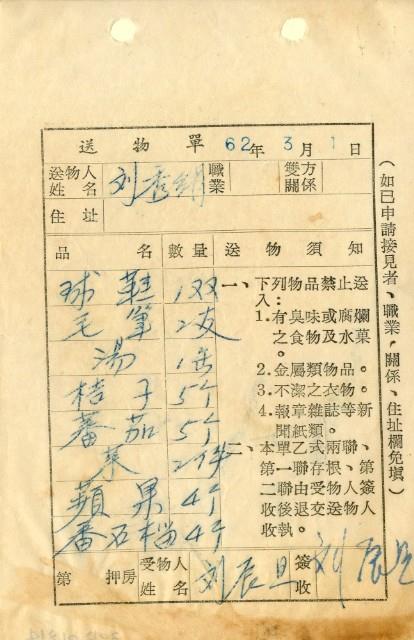 送物單 62年3月1日
送物人姓名 刘秀 職業 雙方關係
住址
品名 數量 送物須知
球鞋 1双
毛筆 2支
湯 1缶
桔子 5个
蕃茄 5个
菜 2件
蘋果 4个
番石榴 4个
一、下列物品禁止送
入:
1.有臭味或腐爛
之食物及水菓
。
2.金屬類物品。
3.不潔之衣物。
4.報章雜誌等新
聞紙類。
二、本單乙式兩聯、
第一聯存根、第
二聯由受物人簽
收後退交送物人
收執。
第 押房 受物人姓名 刘辰旦 簽收 刘辰旦
(如已申請接見者、職業、關係、住址欄免填)